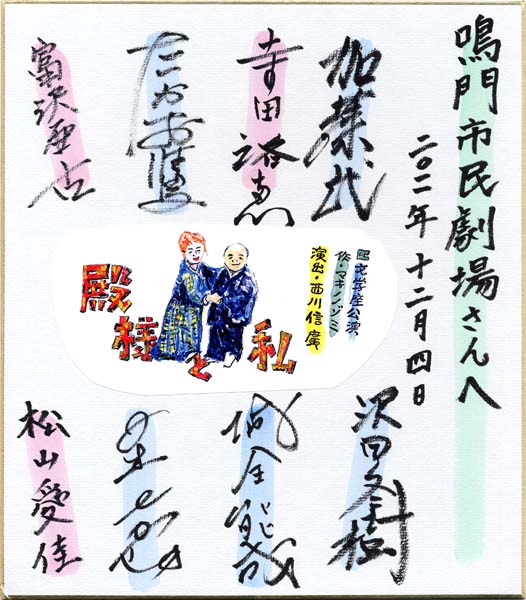 鳴門市民劇場さんへ
二〇一一年十二月四日
加藤武
寺田路恵
たかお鷹
富沢亜古
文学座公演
作・マキノノゾミ
演出・西川信廣
殿様と私
沢田冬樹
城全能成
松山愛佳